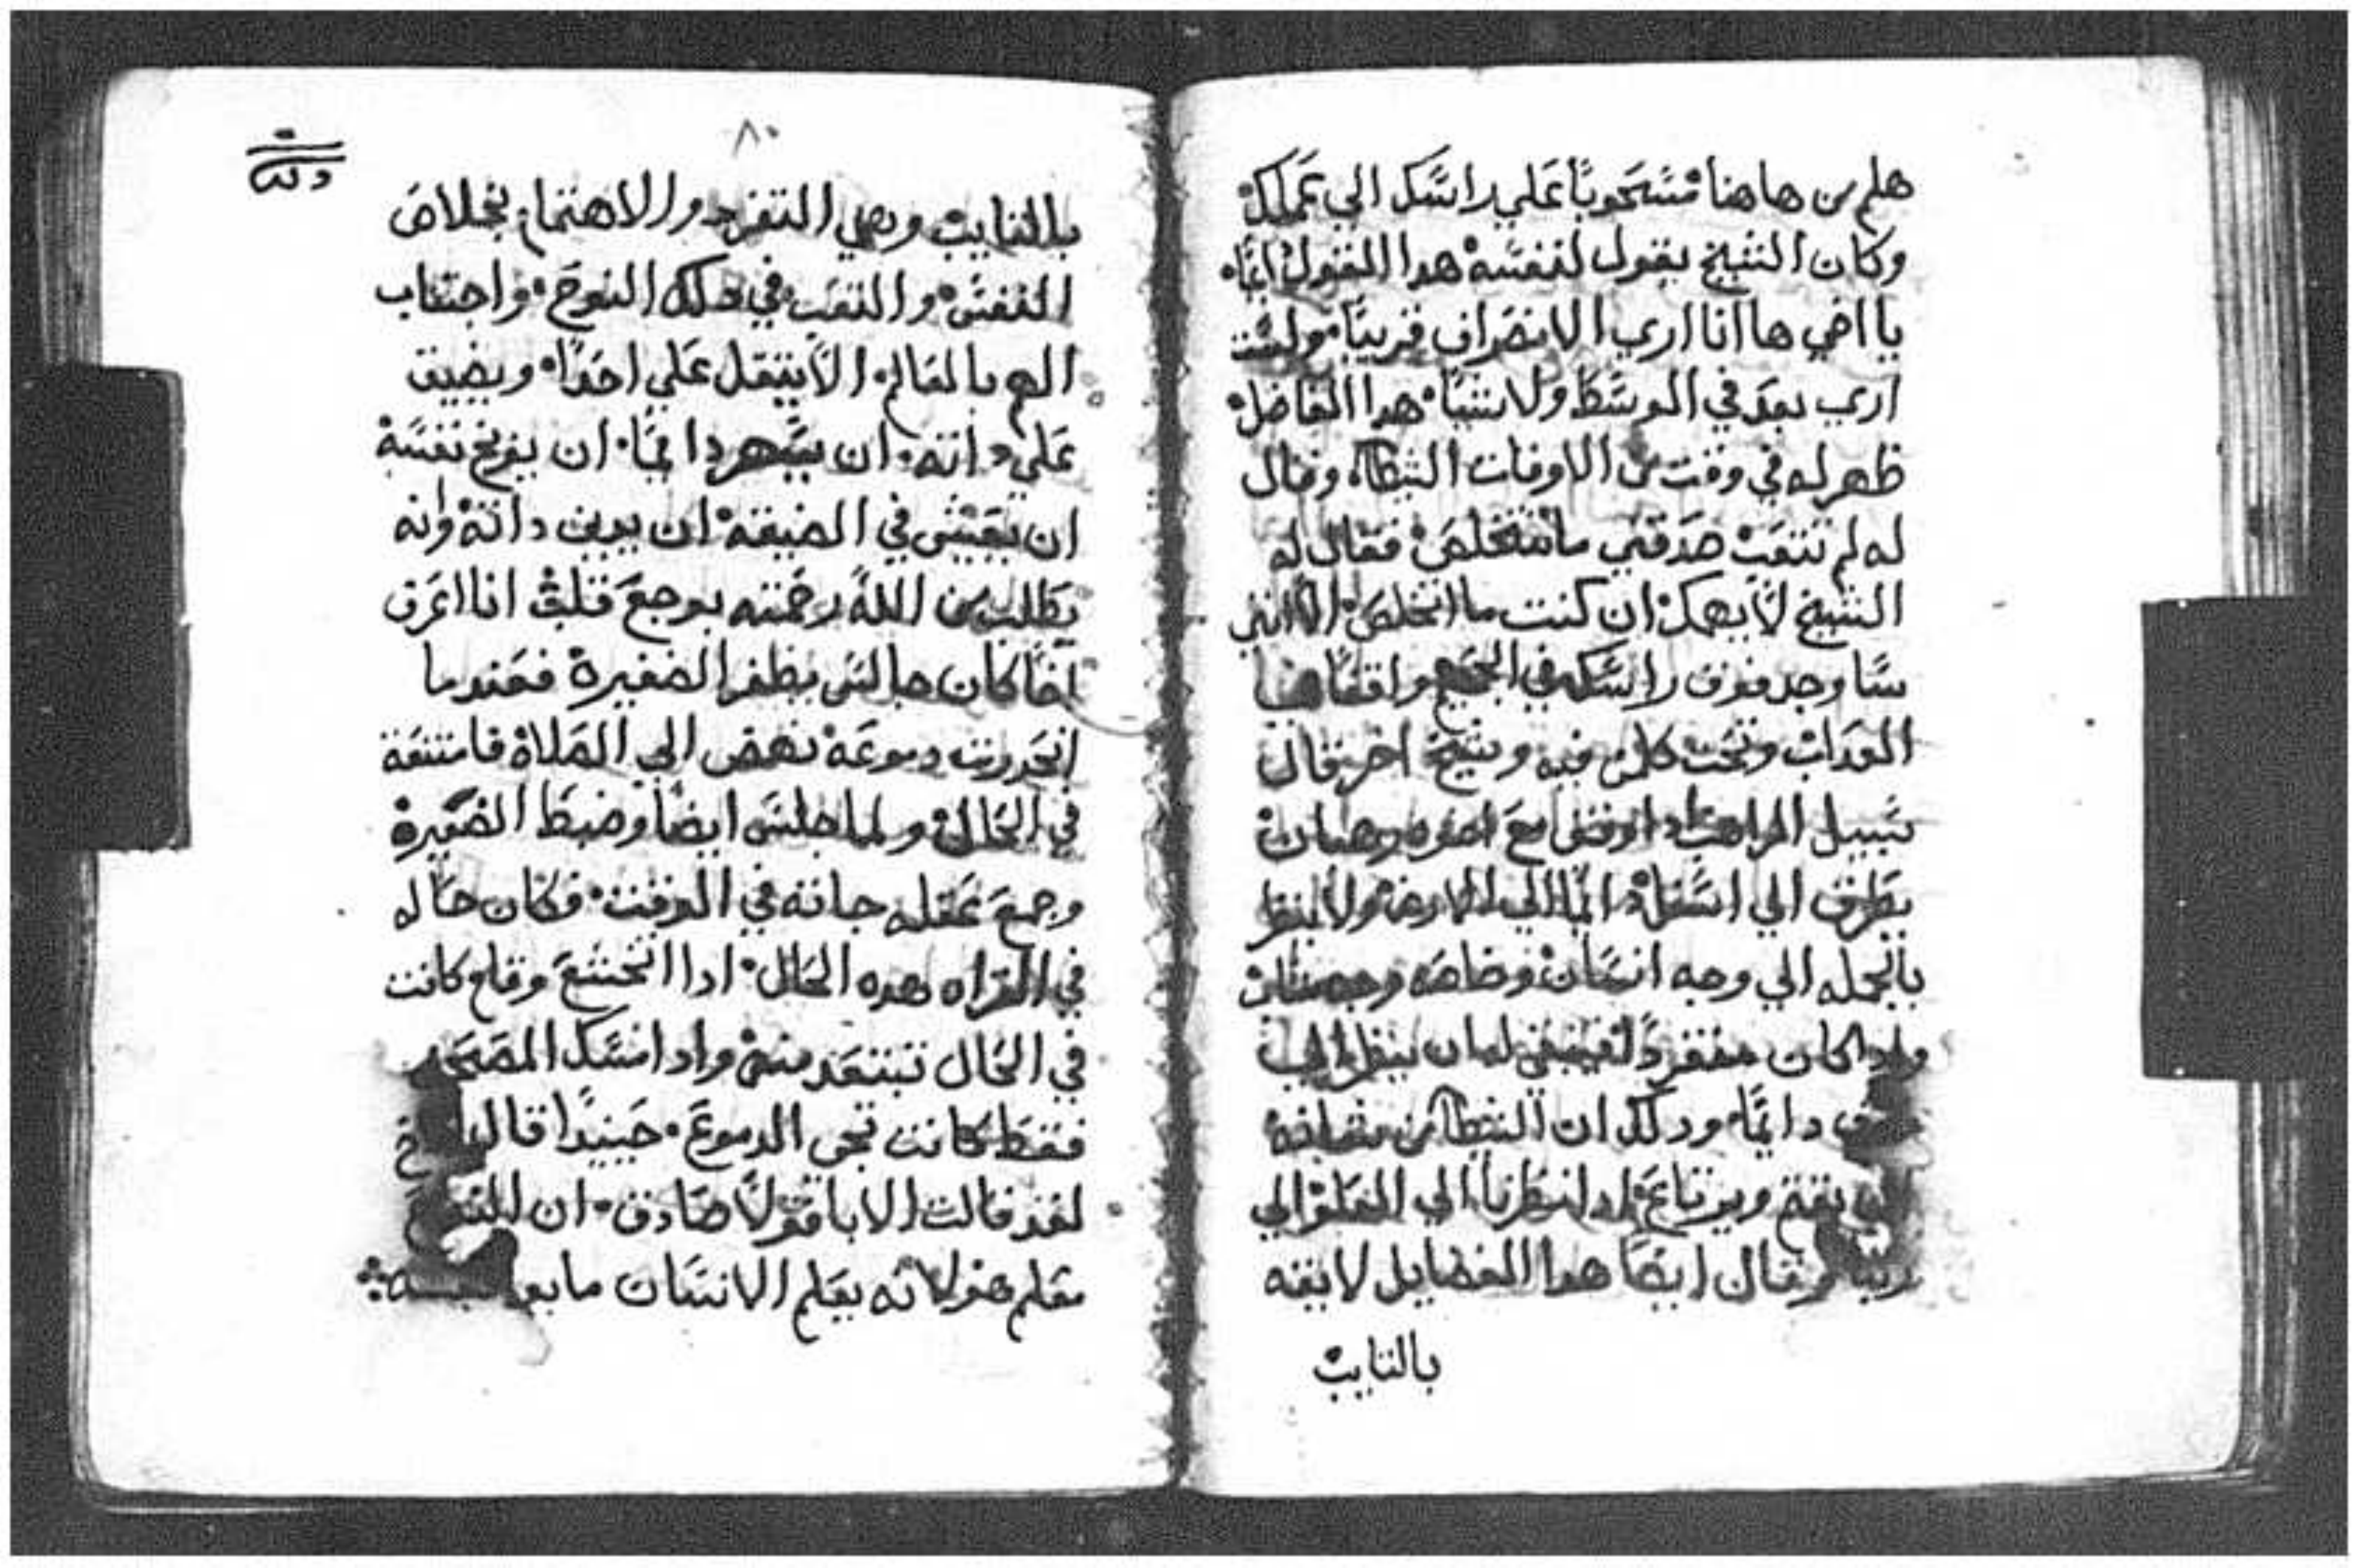 هلم من هاهنا مسحوبًا علي راسك الي عملك
وكان الشيخ يقول لنفسه هدا القول ايضًا
يا اخي ها انا اري الانصراف قريبًا ولست
اري بعد في الوسط ولا شيا هدا الفاضل
ظهر له في وقت من الاوقات الشيطان وقال
له لم تتعب صدقني ما تتخلص فقال له
الشيخ لا يهمك ان كنت ما اتخلص الا انني
سا وجد فوق راسك في الجحيم واقفًا
العداب وتحت كلمن فيه وشيخ اخر قال
سبيل الراهب ادا وقف مع اخوه رهبان
يطرق الي اسفل دايمًا الي الارض ولا ينظر
بالجمله الي وجه انسان وخاصه وجه شاب
وادا كان منفردًا فينبغي له ان ينظر الي
فوق دايمًا ودلك ان الشيطان من
يغتم ويرتاع ادا نظرنا الي العلو الي
ربنا وقال ايضًا هدا الفضايل لايقه
بالتايب
٨٠
بالتايب وهي التفرد والاهتمام بخلاص
النفس والتعب في دلك النوح واجتناب
الهم بالعالم الا يثقل علي احدًا ويضيق
علي داته ان يسهر دايمًا ان يوبخ نفسه
ان يعيش في الضيقه ان يدين داته وانه
يطلب من الله رحمته بوجع قلب انا اعرف
اخًا كان جالس يظفر الضفيرة فعندما
انحدرت دموعه نهض الي الصلاة فامتنعة
في الحال ولما جلس ايضًا وضبط الضفيرة
وجمع عقله جاته في الوقت فكان حاله
في القراه هده الحال ادا اتخشع وقام كانت
في الحال تبتعد منه وادا مسك المصحف
فقط كانت تجي الدموع حينيدًا قال
لقد قالت الابا قولًا صادق ان النوح
معلم هو لانه يعلم الانسان ما